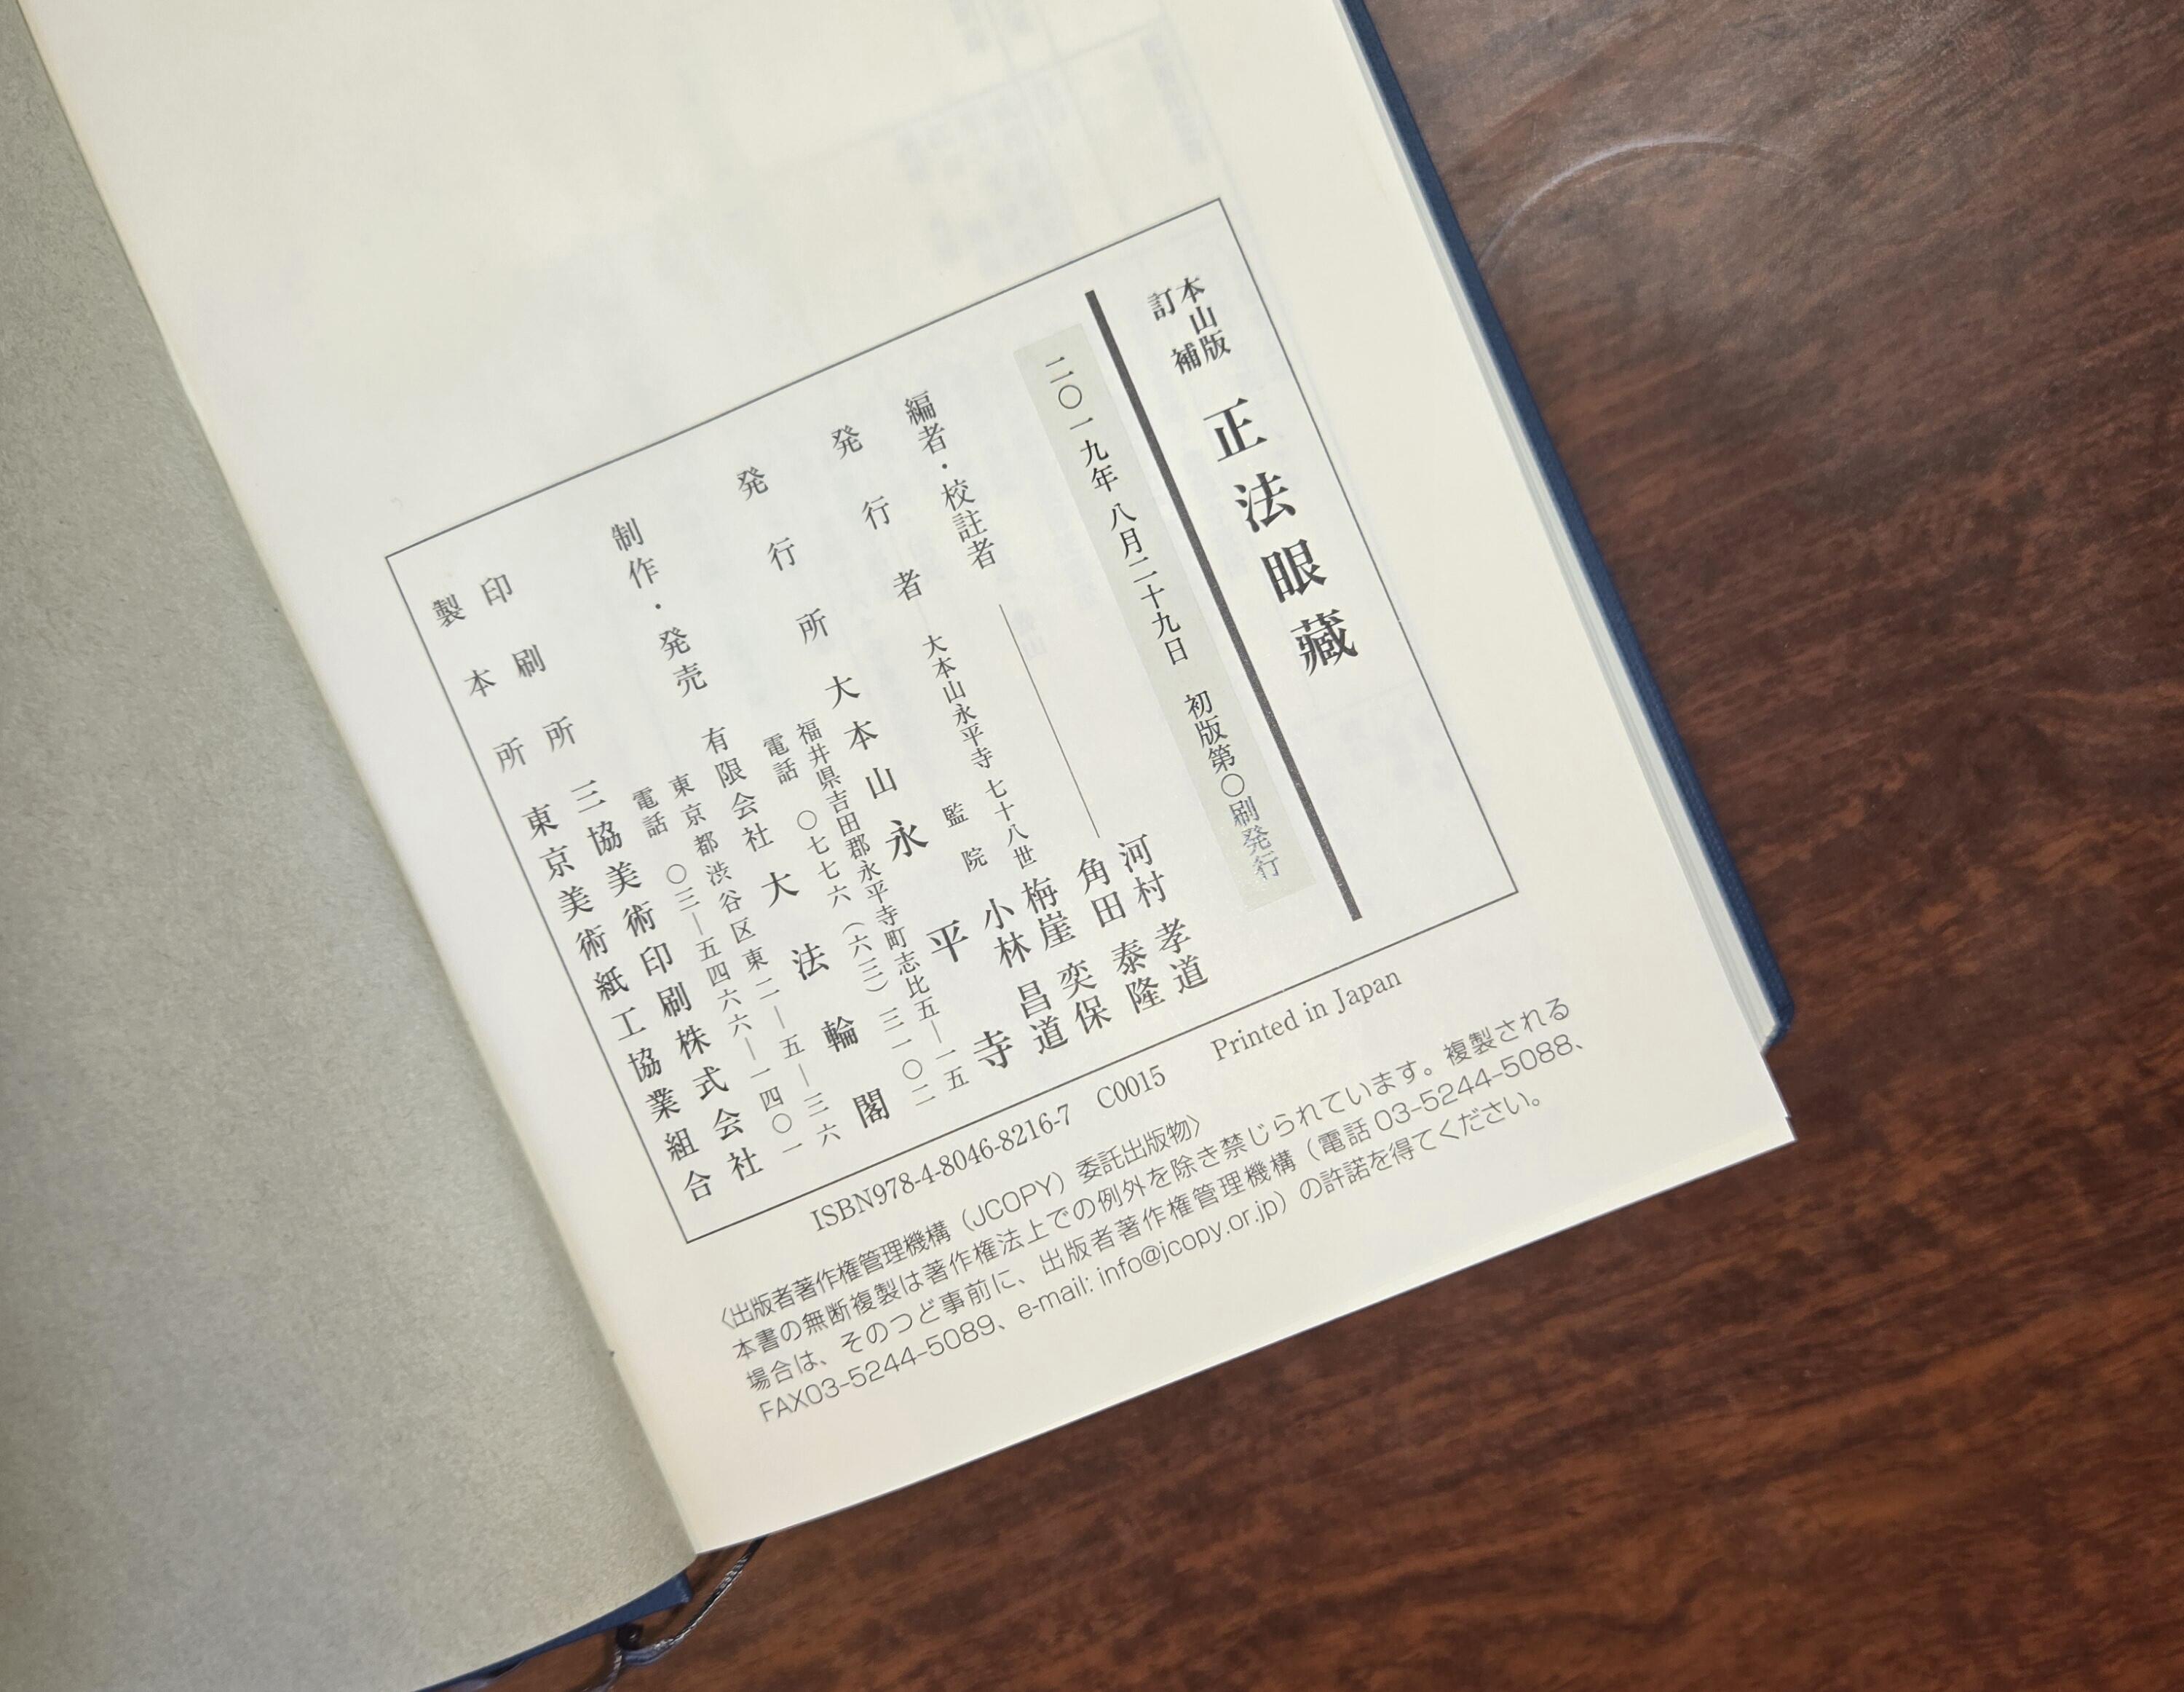 本山版
訂補
正法眼藏
二〇一九年八月二十九日　初版第〇刷発行
編者・校註者
河村　孝道
角田　泰隆
発行者　大本山永平寺七十八世　栴崖　奕保
監院　小林　昌道
発行所　大本山永平寺
福井県吉田郡永平寺町志比五―一五
電話　〇七七六（六三）三一〇二
制作・発売　有限会社　大法輪閣
東京都渋谷区東二―五―三六
電話　〇三―五四六六―一四〇一
印刷所　三協美術印刷株式会社
製本所　東京美術紙工協業組合
ISBN978-4-8046-8216-7　C0015　Printed in Japan
〈出版者著作権管理機構（JCOPY）委託出版物〉
本書の無断複製は著作権法上での例外を除き禁じられています。複製される
場合は、そのつど事前に、出版者著作権管理機構（電話 03-5244-5088、
FAX03-5244-5089、e-mail: info@jcopy.or.jp）の許諾を得てください。